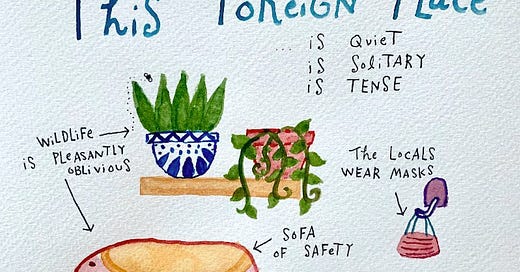 This Foreign Place
... is Quiet
is Solitary
is Tense
Wildlife
is Pleasantly
oblivious
The Locals
wear masks
Sofa
of Safety